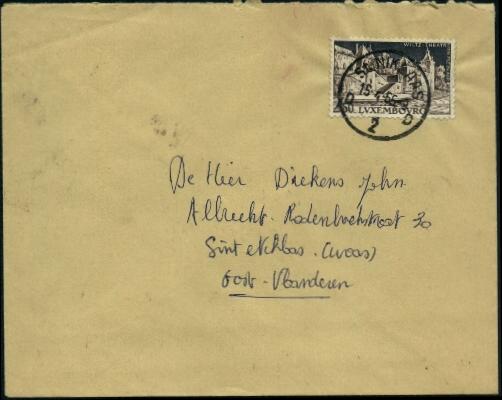 WILTZ - THEATR
ST. NIKLAAS
D D
LVXEMBOURG
2
De Hier Dierkens John
Albrecht - Rodenbachstraat 30
Sint Niklaas - (Waas)
Oost - Vlanderen